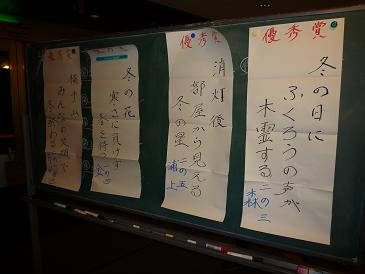 優秀賞
冬の日に
ふくろうの声が
木霊する
二の三
森
優秀賞
消灯後
部屋から見える
冬の星
二の五
浦上
冬の花
寒さに負けず
春を待つ
優秀賞
みんなの笑顔で
冬終わる